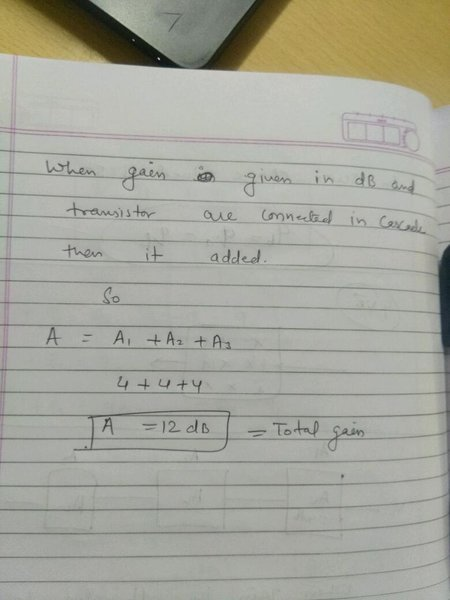 When gain is given in dB and
transistor are connected in Cascade
then it added.
So
A = A1 + A2 + A3
4 + 4 + 4
A = 12 dB = Total gain